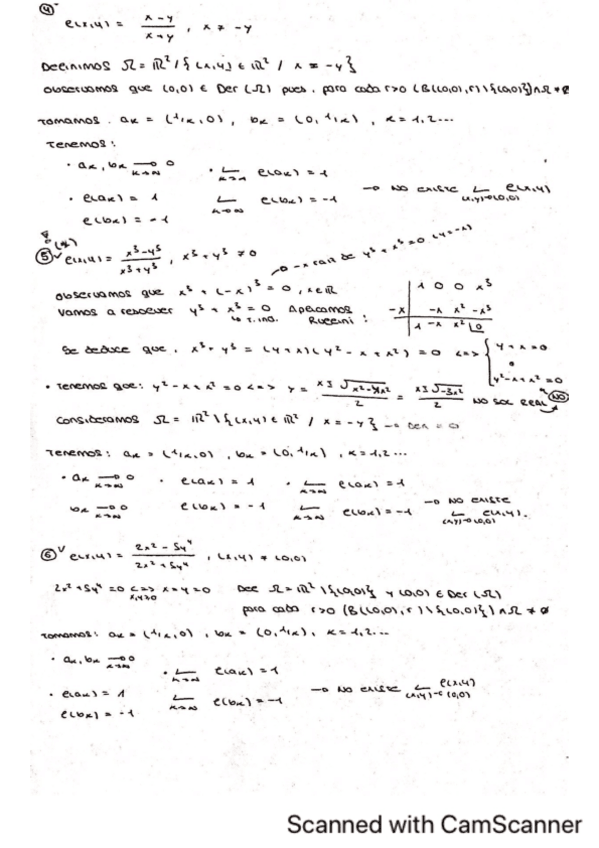 ④
e(x,y) = x-y / x+y , x ≠ -y
Definimos Ω = ℝ² / {(x,y) ∈ ℝ² / x = -y}
observamos que (0,0) ∈ Der(Ω) pues, para cada r>0 (B((0,0),r)\{(0,0)})∩Ω ≠ ∅
Tomamos. aₖ = (1/k,0), bₖ = (0,1/k), k = 1,2...
Tenemos:
· aₖ, bₖ → 0 k→∞ · L e(aₖ) = 1
· e(aₖ) = 1 L k→∞ e(bₖ) = -1 → No existe L (x,y)→(0,0) e(x,y)
e(bₖ) = -1
⑤ e(x,y) = x³-y³ / x³+y³ , x³+y³ ≠ 0
→ -x raíz de y³+x³=0 (y=-x)
observamos que x³+(-x)³ = 0, x∈ℝ
1 0 0 x³
Vamos a resolver y³+x³=0 Aplicamos Ruffini:
-x -x x² -x³
1 -x x² 0
Se deduce que, x³+y³ = (y+x)(y²-x+x²) = 0 <=> { y+x=0
o
y²-x+x²=0
· Tenemos que: y²-x+x²=0 <=> y = x±√x²-4x² / 2 = x±√-3x² / 2 NO SOL REAL NO
Consideramos Ω = ℝ² \ {(x,y) ∈ ℝ² / x = -y}
Tenemos: aₖ = (1/k,0), bₖ = (0,1/k), k = 1,2...
· aₖ → 0 k→∞ · e(aₖ) = 1 · L k→∞ e(aₖ) = 1
bₖ → 0 k→∞ e(bₖ) = -1 L k→∞ e(bₖ) = -1 → No existe L (x,y)→(0,0) e(x,y).
⑥ e(x,y) = 2x²-5y⁴ / 2x²+5y⁴ , (x,y) ≠ (0,0)
2x²+5y⁴=0 <=> x=y=0 Def Ω = ℝ² \ {(0,0)} y (0,0) ∈ Der(Ω)
para cada r>0 (B((0,0),r)\{(0,0)})∩Ω ≠ ∅
Tomamos: aₖ = (1/k,0), bₖ = (0,1/k), k = 1,2...
· aₖ, bₖ → 0 k→∞ · L k→∞ e(aₖ) = 1
· e(aₖ) = 1 L k→∞ e(bₖ) = -1 → No existe L (x,y)→(0,0) e(x,y)
e(bₖ) = -1
Scanned with CamScanner